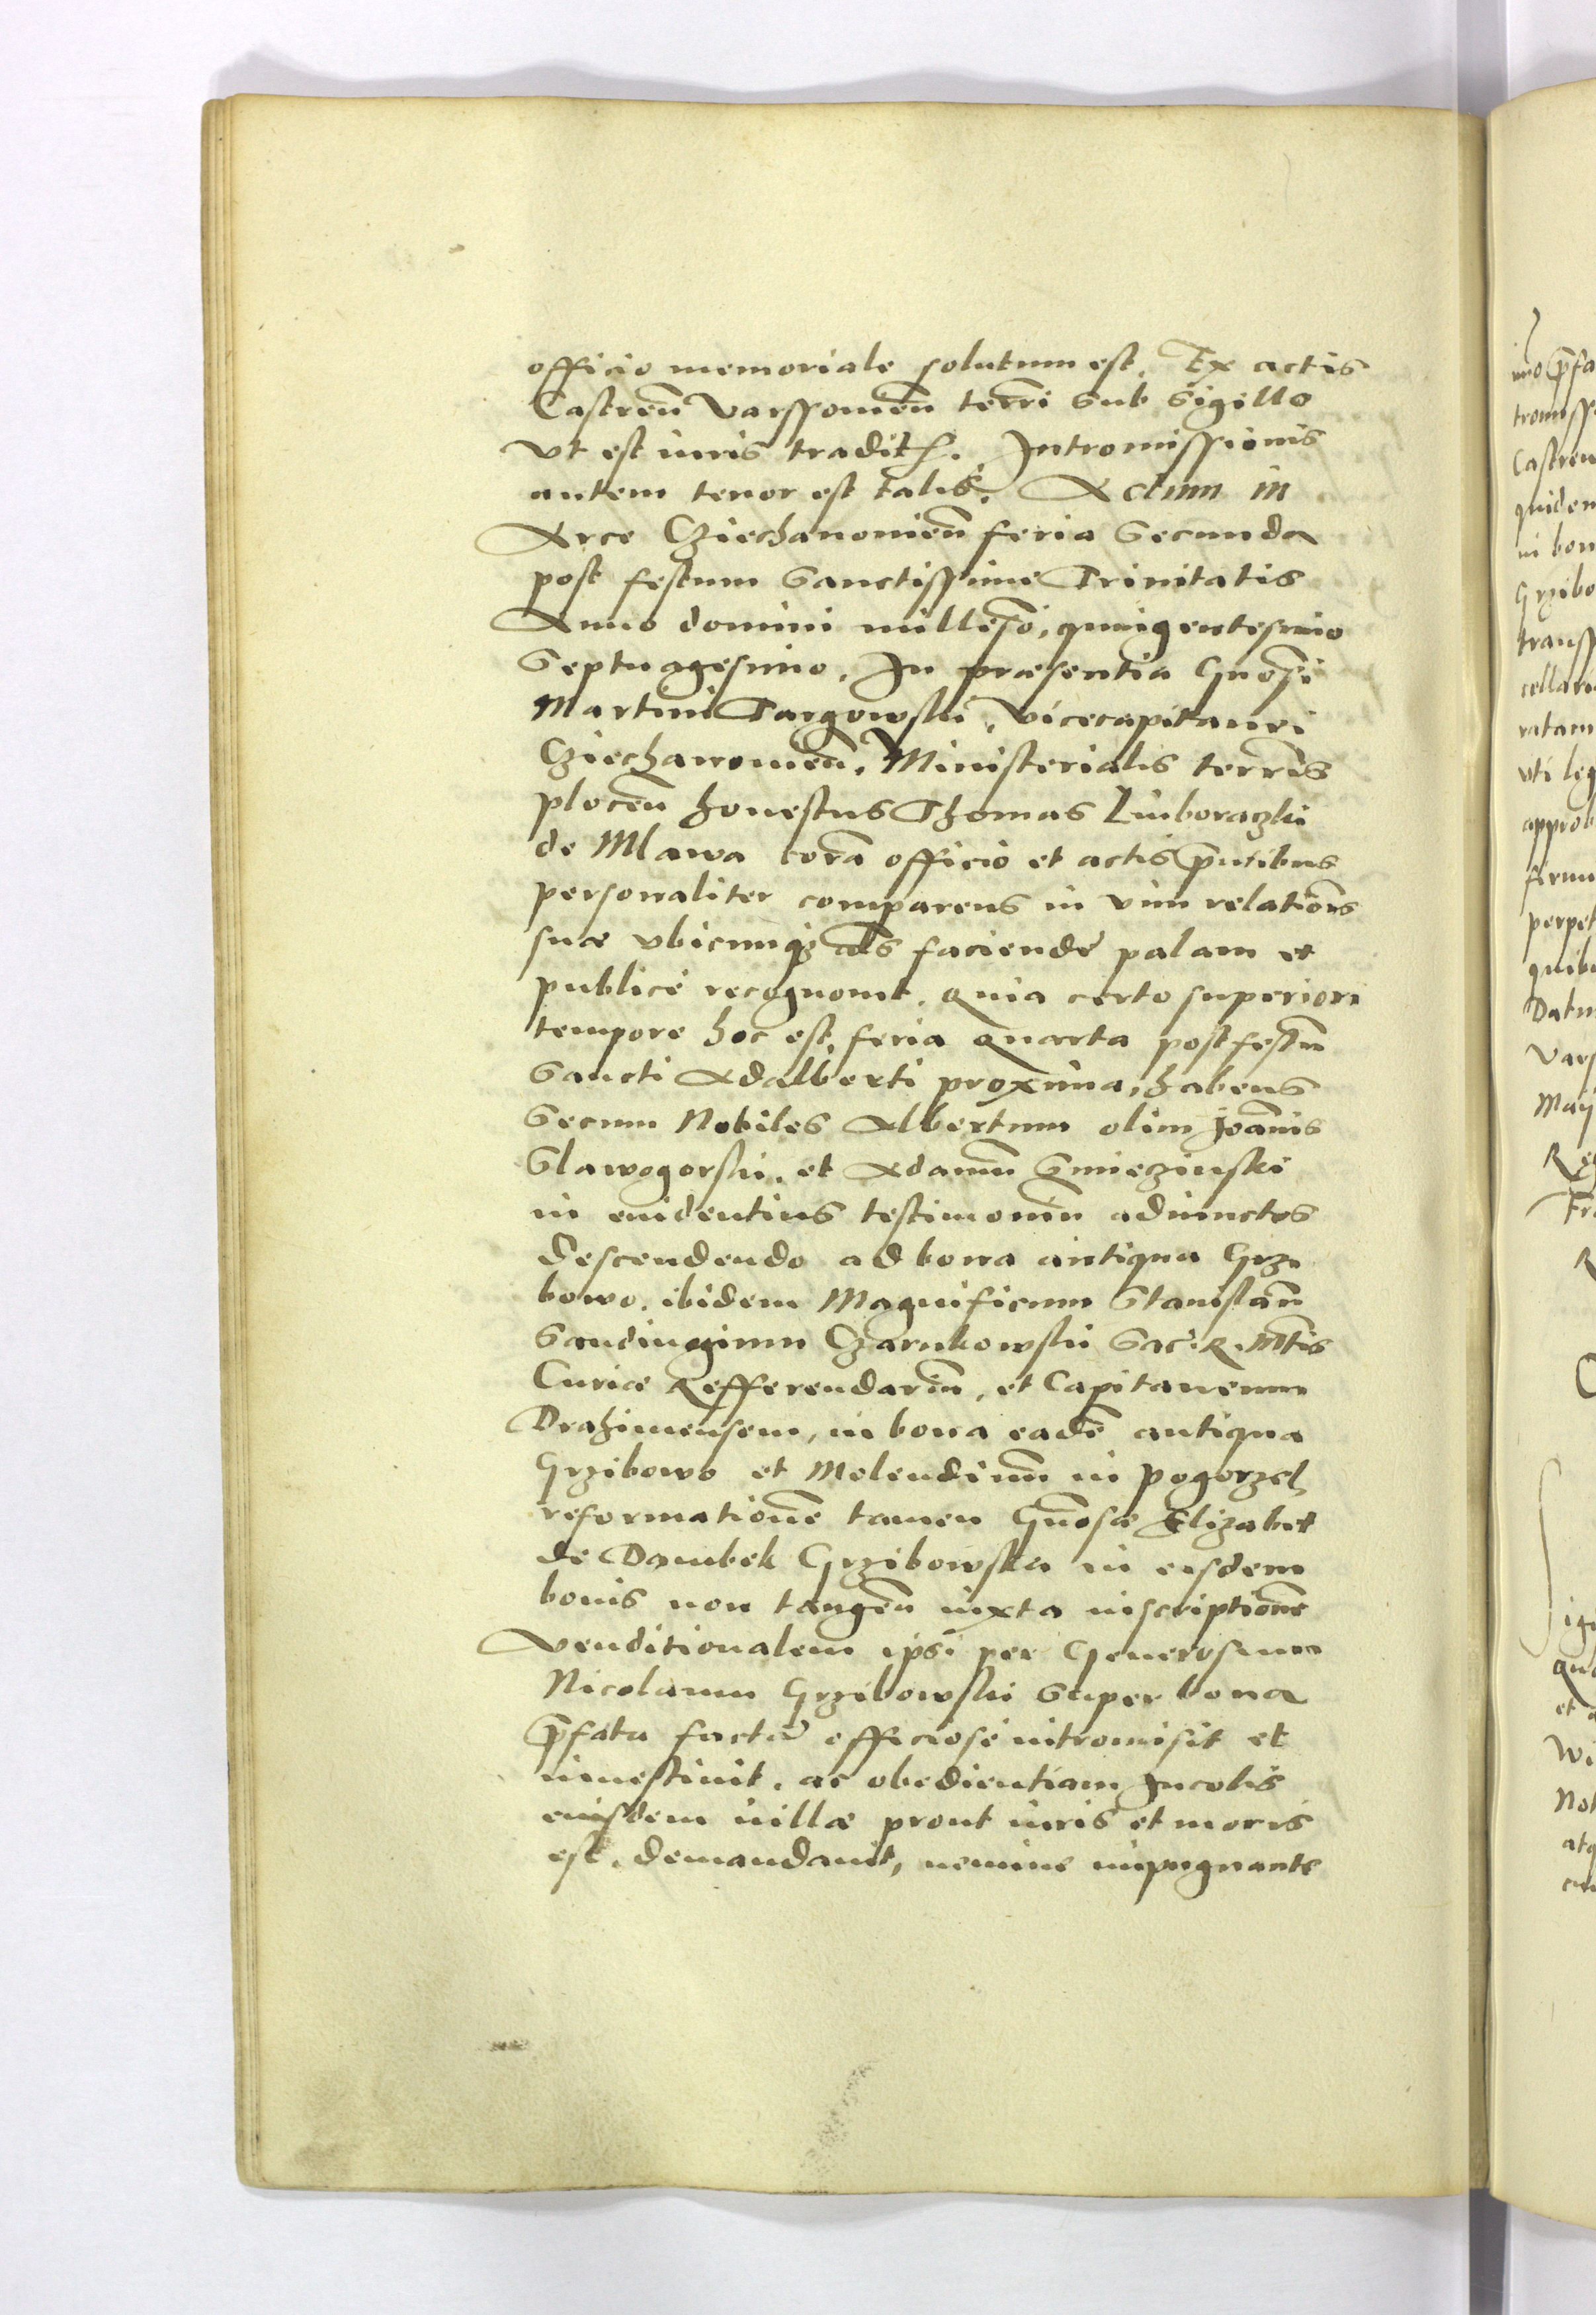 officio memoriale solutum est. Ex actis
Castren̄ Varssouien̄ terr̄i sub sigillo
vt est iuris tradit. Intromissionis
autem tenor est talis. Actum in
Arce Cziechanouien̄ feria secunda
post festum Sanctissime Trinitatis
Anno domini millesō, quingentesimo
Septuagesimo. In præsentia Gnōsi
Martini Targowski, vicecapitanei
Cziechanouien̄. Ministerialis terrēis
plocen̄ honestus Thomas
de Mlawa corā officio et actis p̄ntibus
personaliter comparens in vim relationīs
suæ vbicunqꝫ faciendę palam et
publicè recognouit. quia certo superiori
tempore hoc est, feria quarta post festū
Sancti Adalberti proxima, habens
secum Nobiles Albertum olim Joānis
Slawogorski, et Adamū
in euidentius testimoniū adiunctos
descendendo ad bona antiqua Grzi
bowo. ibidem Magnificum Stanislaū
Sandiuogium Czarnkowski Sac. R. Mtis
Curiæ Refferendariū, et Capitaneum
Drahimensem, in bona eadē antiqua
Grzibowo et Molendinū in pogorzel
reformationē tamen Gn̄osæ Elizabet
de Dambek Grzibowska in eisdem
bonis non tangen̄ iuxta inscriptionē
venditionalem ipsi per Generosum
Nicolaum Grzibowski super bona
p̄fata factā officiosè intromisit et
inuestiuit. ac obedientiam Incolis
eiusdem uillæ prout iuris et moris
est, demandauit, nemine impugnante